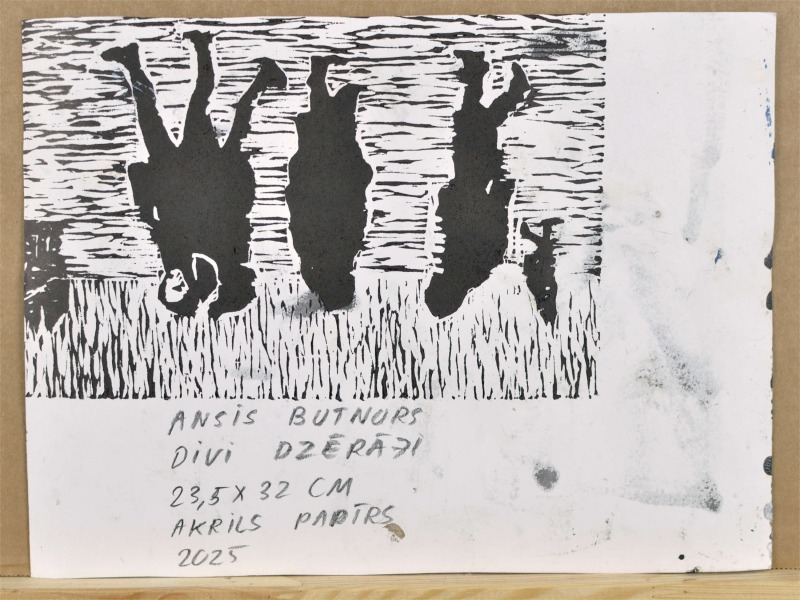 ANSIS BUTNORS
DIVI DZĒRĀJI
23,5 X 32 CM
AKRILS PAPĪRS
2025